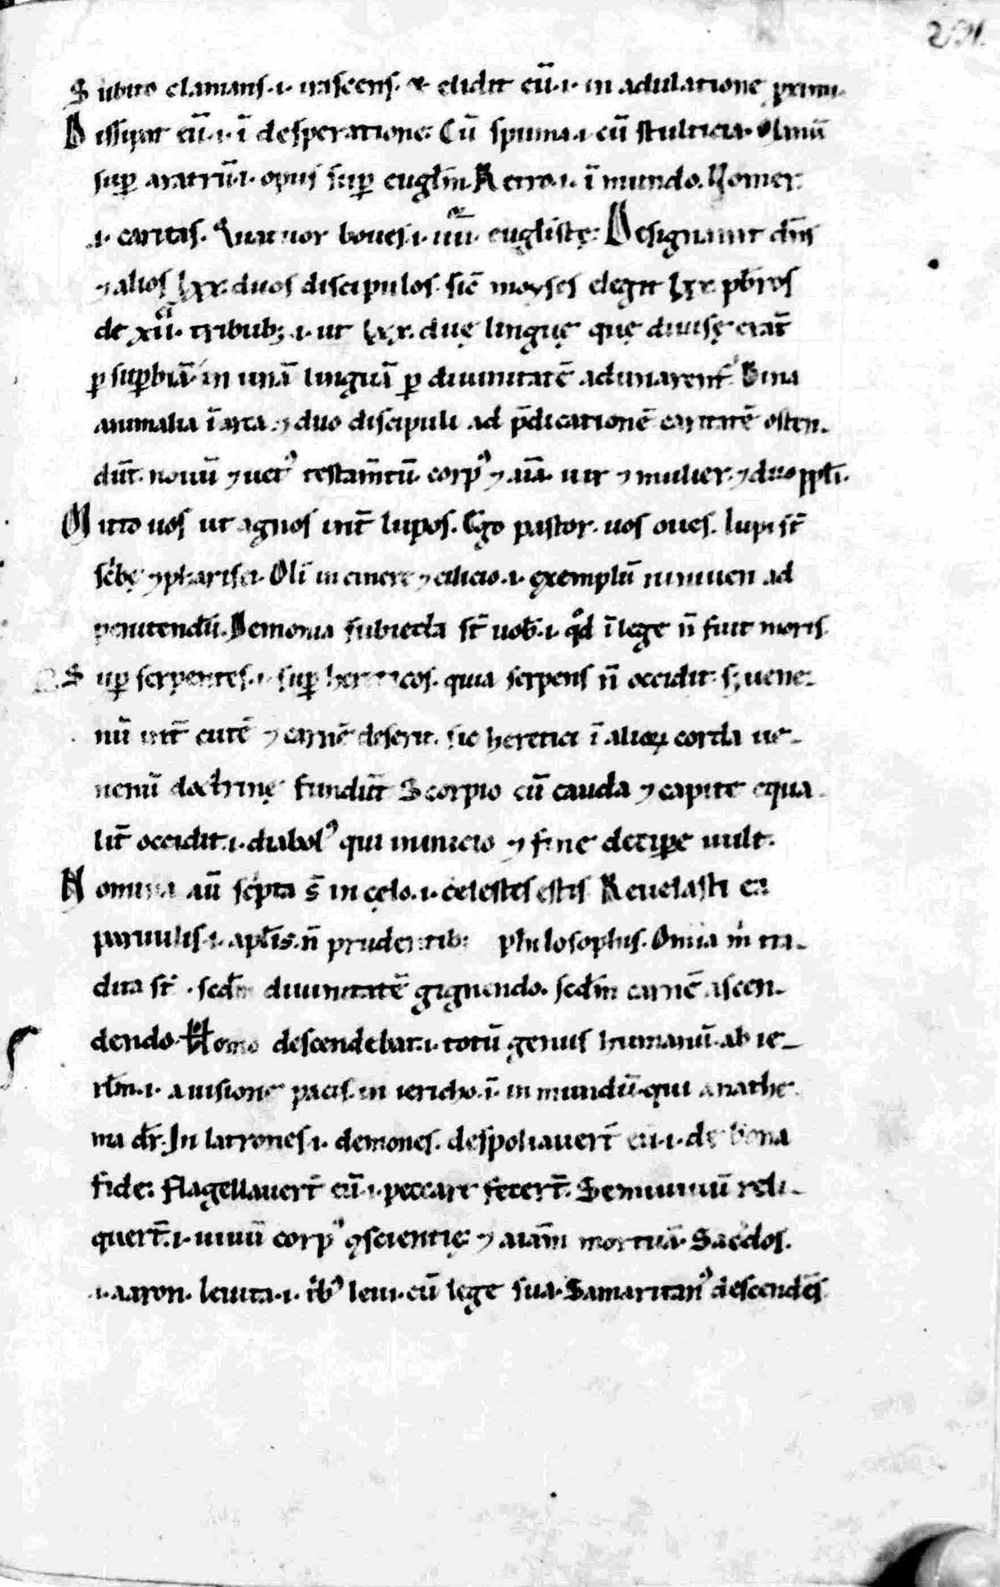 291.
Subito clamans .i. irascens. & elidit eū .i. in adulatione primi.
Dissipat eū .i. ī desperatione. Cū spuma .i. cū stulticia. Manū
sup̄ aratrū .i. opus sup̄ euglm̄. Retro .i. ī mundo. Uomer.
.i. caritas. Quatuor boues .i. iiii euglistę. Designauit dn̄s
⁊ alios lxx. duos discipulos. sic̄ moyses elegit lxx. pb̄ros
de xii. tribub; .i. ut lxx. duę linguę quę diuisę erāt
ꝑ suꝑbiā in unā linguā ꝑ diuinitatē adunarent̄. Bina
animalia ī arca. ⁊ duo discipuli ad p̄dicationē caritatē osten-
dūt. nouū ⁊ uet' testam̄tū. corp' ⁊ aīa. uir ⁊ mulier. ⁊ duo ppl̄i.
Mitto uos ut agnos int̄ lupos. Ego pastor. uos oues. lupi st̄
sc̄bę ⁊ pharisei. Oli in cinere ⁊ cilicio .i. exemplū niniuen ad
penitendū. Demonia subiecta st̄ uob̄ .i. qd̄ ī lege n̄ fuit moris.
Sup̄ serpentes .i. sup̄ hereticos. quia serpens n̄ occidit s; uene-
nū int̄ cutē ⁊ carnē deserit. sic heretici ī alioꝝ corda ue-
nenū doctrinę fundūt Scorpio cū cauda ⁊ capite equa-
lit̄ occidit .i. diabol' qui inimicio ⁊ fine deciꝑe uult.
Nomina aū sc̄pta s̄ in cęlo .i. celestes estis Reuelasti ea
paruulis .i. apl̄is. n̄ prudentib; philosophis. Omīa m̄ tra-
dita st̄. secdm̄ diuinitatē gignendo. secdm̄ carnē ascen-
dendo. Homo descendebat .i. totū genus humanū. ab ie-
rlm̄ .i. a uisione pacis. in iericho .i. in mundū. qui anathe-
ma dr̄. In latrones .i. demones. despoliauert̄ eū .i. de bona
fide. Flagellauert̄ eū .i. peccare fecert̄. Semiuiuū reli-
quert̄ .i. uiuū corp' ꝯscientię. ⁊ aīam mortuā. Sac̄dos.
.i. aaron. leuita .i. leui. cū lege sua. Samaritan' descendēs